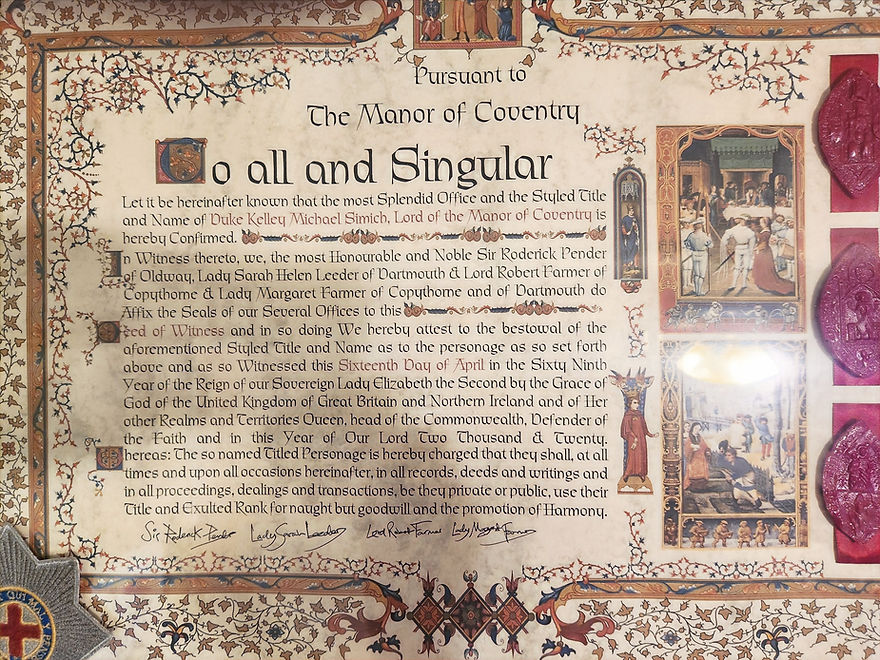 Pursuant to
The Manor of Coventry
To all and Singular
Let it be hereinafter known that the most Splendid Office and the Styled Title
and Name of Duke Kelley Michael Simich, Lord of the Manor of Coventry is
hereby Confirmed.
In Witness thereto, we, the most Honourable and Noble Sir Roderick Pender
of Oldway, Lady Sarah Helen Leeder of Dartmouth & Lord Robert Farmer of
Copythorne & Lady Margaret Farmer of Copythorne and of Dartmouth do
Affix the Seals of our Several Offices to this
Deed of Witness and in so doing We hereby attest to the bestowal of the
aforementioned Styled Title and Name as to the personage as so set forth
above and as so Witnessed this Sixteenth Day of April in the Sixty Ninth
Year of the Reign of our Sovereign Lady Elizabeth the Second by the Grace of
God of the United Kingdom of Great Britain and Northern Ireland and of Her
other Realms and Territories Queen, head of the Commonwealth, Defender of
the Faith and in this Year of Our Lord Two Thousand & Twenty.
Whereas: The so named Titled Personage is hereby charged that they shall, at all
times and upon all occasions hereinafter, in all records, deeds and writings and
in all proceedings, dealings and transactions, be they private or public, use their
Title and Exulted Rank for naught but goodwill and the promotion of Harmony.
Sir Roderick Pender Lady Sarah Leeder Lord Robert Farmer Lady Margaret Farmer
QUI MAL Y